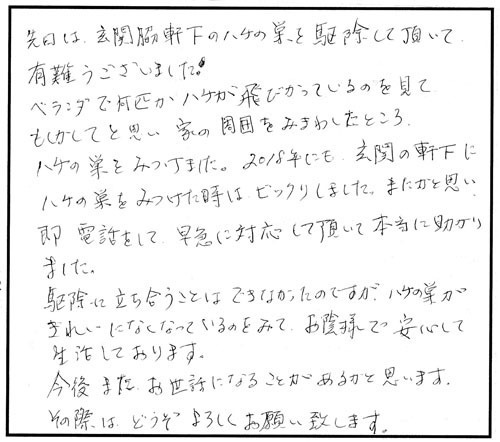 先日は、玄関脇軒下のハチの巣を駆除して頂いて、
有難うございました。
ベランダで何匹かハチが飛びかっているのを見て
もしかしてと思い 家の周囲をみまわしたところ、
ハチの巣をみつけました。2018年にも、玄関の軒下に
ハチの巣をみつけた時はビックリしました。まさかと思い
即 電話をして、早急に対応して頂いて本当に助かり
ました。
駆除に立ち合うことはできなかったのですが、ハチの巣が
きれいになくなっているのをみて、お陰様で安心して
生活しております。
今後また、お世話になることがあるかと思います。
その際は、どうぞよろしくお願い致します。